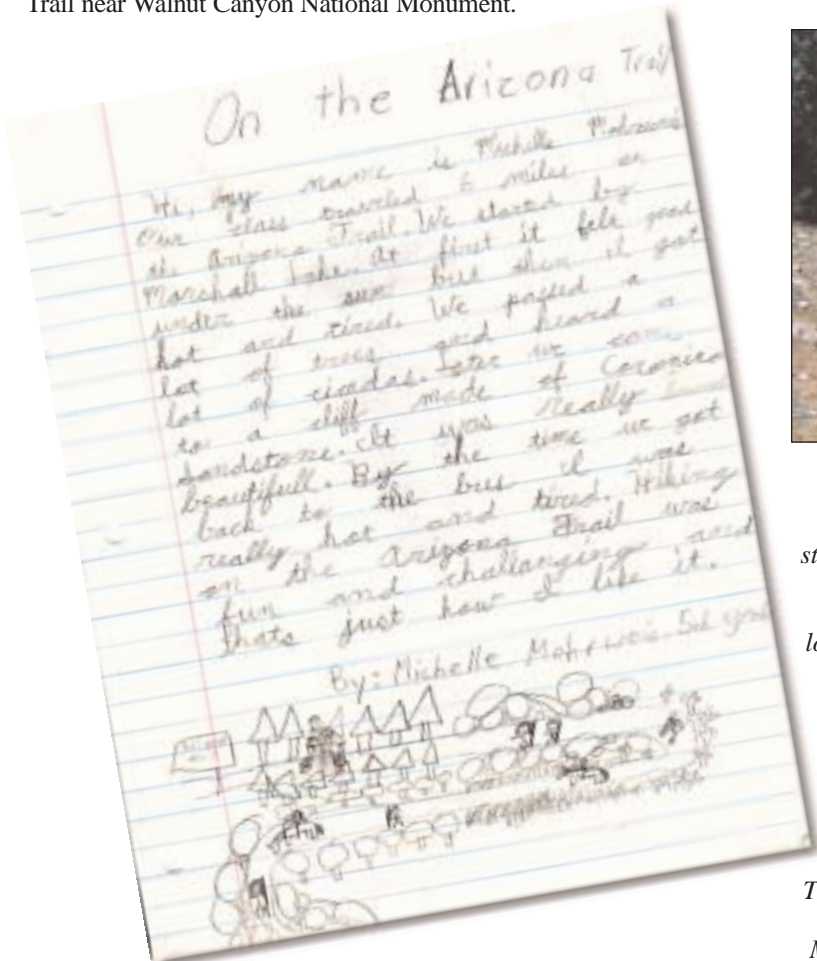 Trail near Walnut Canyon National Monument.
On the Arizona Trail
Hi, my name is Michelle
Our class traveled miles on
the Arizona Trail. We stared by
Marchall Lake. At first it felt good
under the sun but then it got
hot and tired. We passed a
lot of trees and heard a
lot of cicadas. we
to a cliff made of
Sandstone. It was really
beautifull. By the time we got
back to the bus it was
really hot and tired. Hiking
on the Arizona Trail was
fun and challanging and
thats just how I like it.
By: Michelle
st
lo
T
M